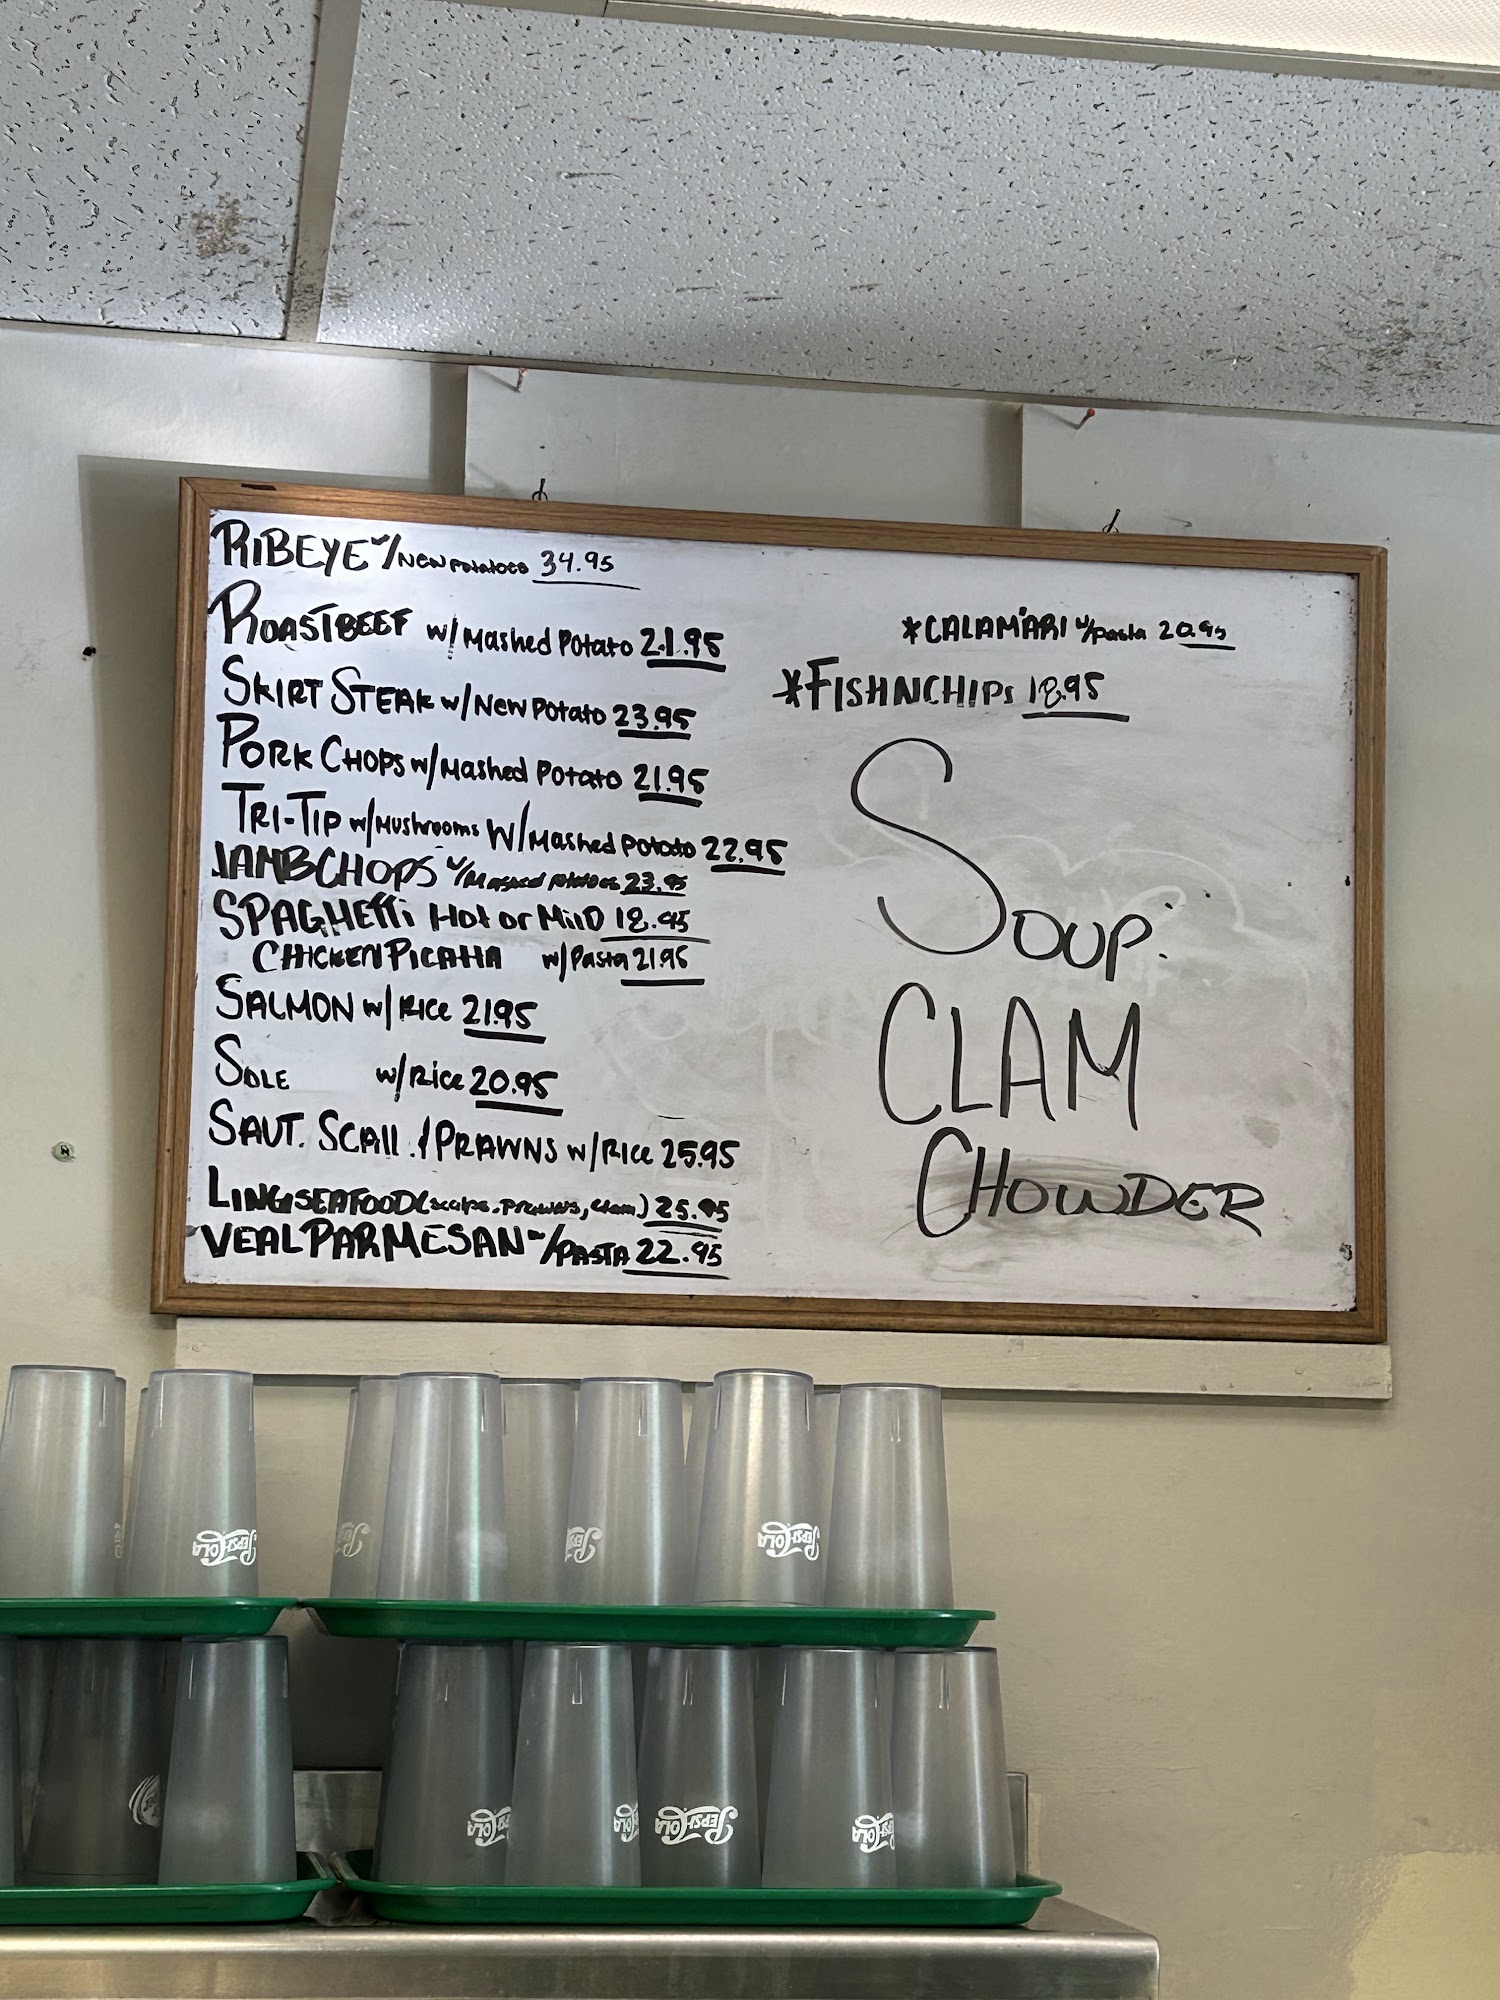 RIBEYE w/New potatoes 34.95
ROASTBEEF w/ Mashed Potato 21.95
SKIRT STEAK w/ New Potato 23.95
PORK CHOPS w/ Mashed Potato 21.95
TRI-TIP w/ Mushrooms W/ Mashed Potato 22.95
LAMBCHOPS w/ Mashed potatoes 23.95
SPAGHETTi Hot or MilD 18.95
CHICKEN PICATTA w/ Pasta 21.95
SALMON w/ Rice 21.95
SOLE w/ Rice 20.95
SAUT. SCAll. / PRAWNS w/ Rice 25.95
LINGISEAFOOD (scalps, Prawns, clam.) 25.95
VEAL PARMESAN w/ PASTA 22.95
*CALAMARI w/ Pasta 20.95
*FISHNCHIPs 18.95
SOUP:
CLAM
CHOWDER
PEPSI-COLA
PEPSI-COLA
PEPSI-COLA
PEPSI-COLA
PEPSI-COLA